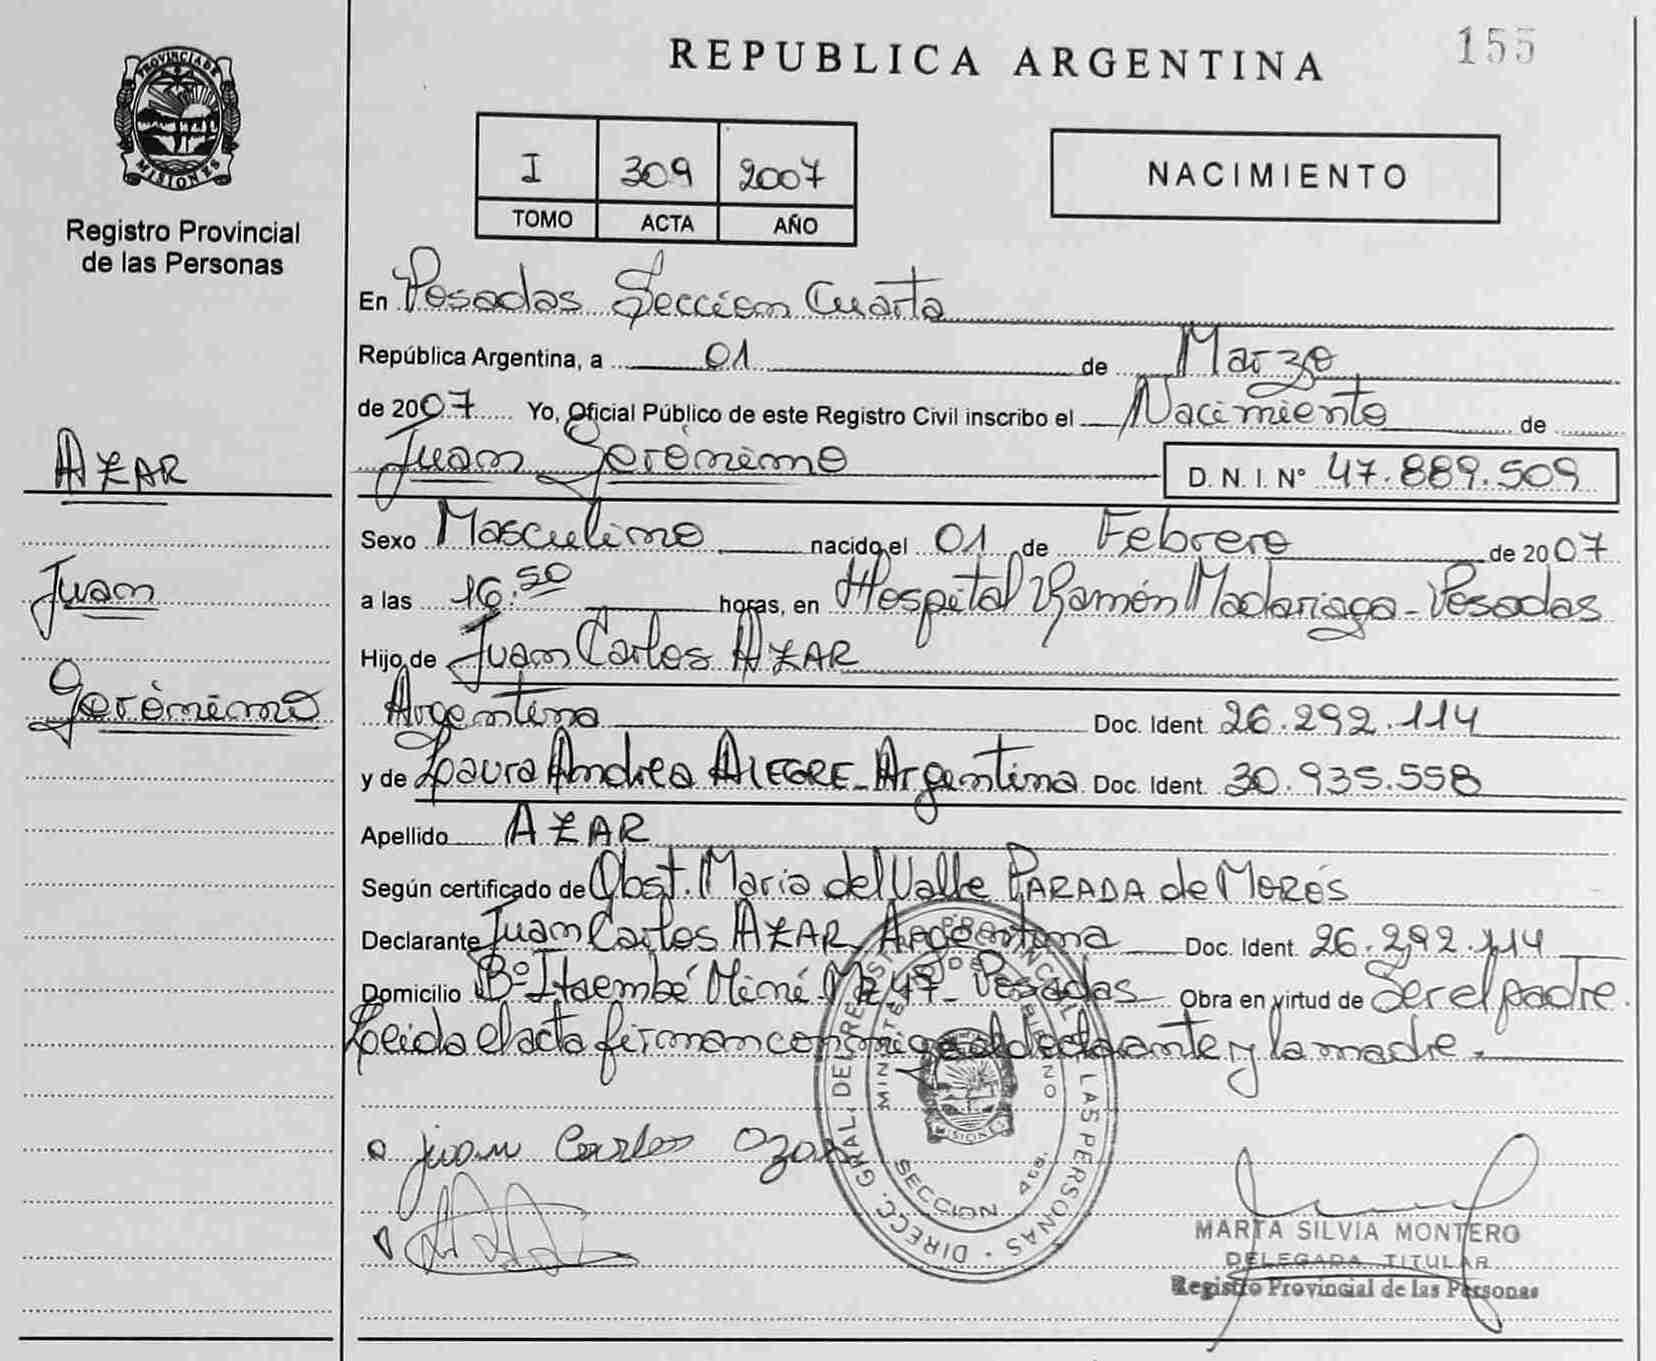 155
REPUBLICA ARGENTINA
PROVINCIA DE
MISIONES
Registro Provincial
de las Personas
I 309 2007
TOMO ACTA AÑO
NACIMIENTO
AZAR
Juan
Gerónimo
En Posadas Sección Cuarta
República Argentina, a 01 de Marzo
de 2007 Yo, Oficial Público de este Registro Civil inscribo el Nacimiento de
Juan Gerónimo D. N. I. Nº 47.889.509
Sexo Masculino nacido el 01 de Febrero de 2007
a las 16.50 horas, en Hospital Ramón Madariaga - Posadas
Hijo de Juan Carlos AZAR
Argentina Doc. Ident. 26.292.114
y de Laura Andrea ALEGRE - Argentina Doc. Ident. 30.935.558
Apellido AZAR
Según certificado de Obst. María del Valle PARADA de MORES
Declarante Juan Carlos AZAR Argentina Doc. Ident. 26.292.114
Domicilio Bº Itaembé Miní Mz 47 - Posadas Obra en virtud de Ser el padre.
Leida el acta firman conmigo el declarante y la madre.
juan Carlos Azar
DIRECC. GRAL. DEL REGIST. PROVINCIAL LAS PERSONAS
SECCION 4ta.
MISIONES
MARTA SILVIA MONTERO
DELEGADA TITULAR
Registro Provincial de las Personas